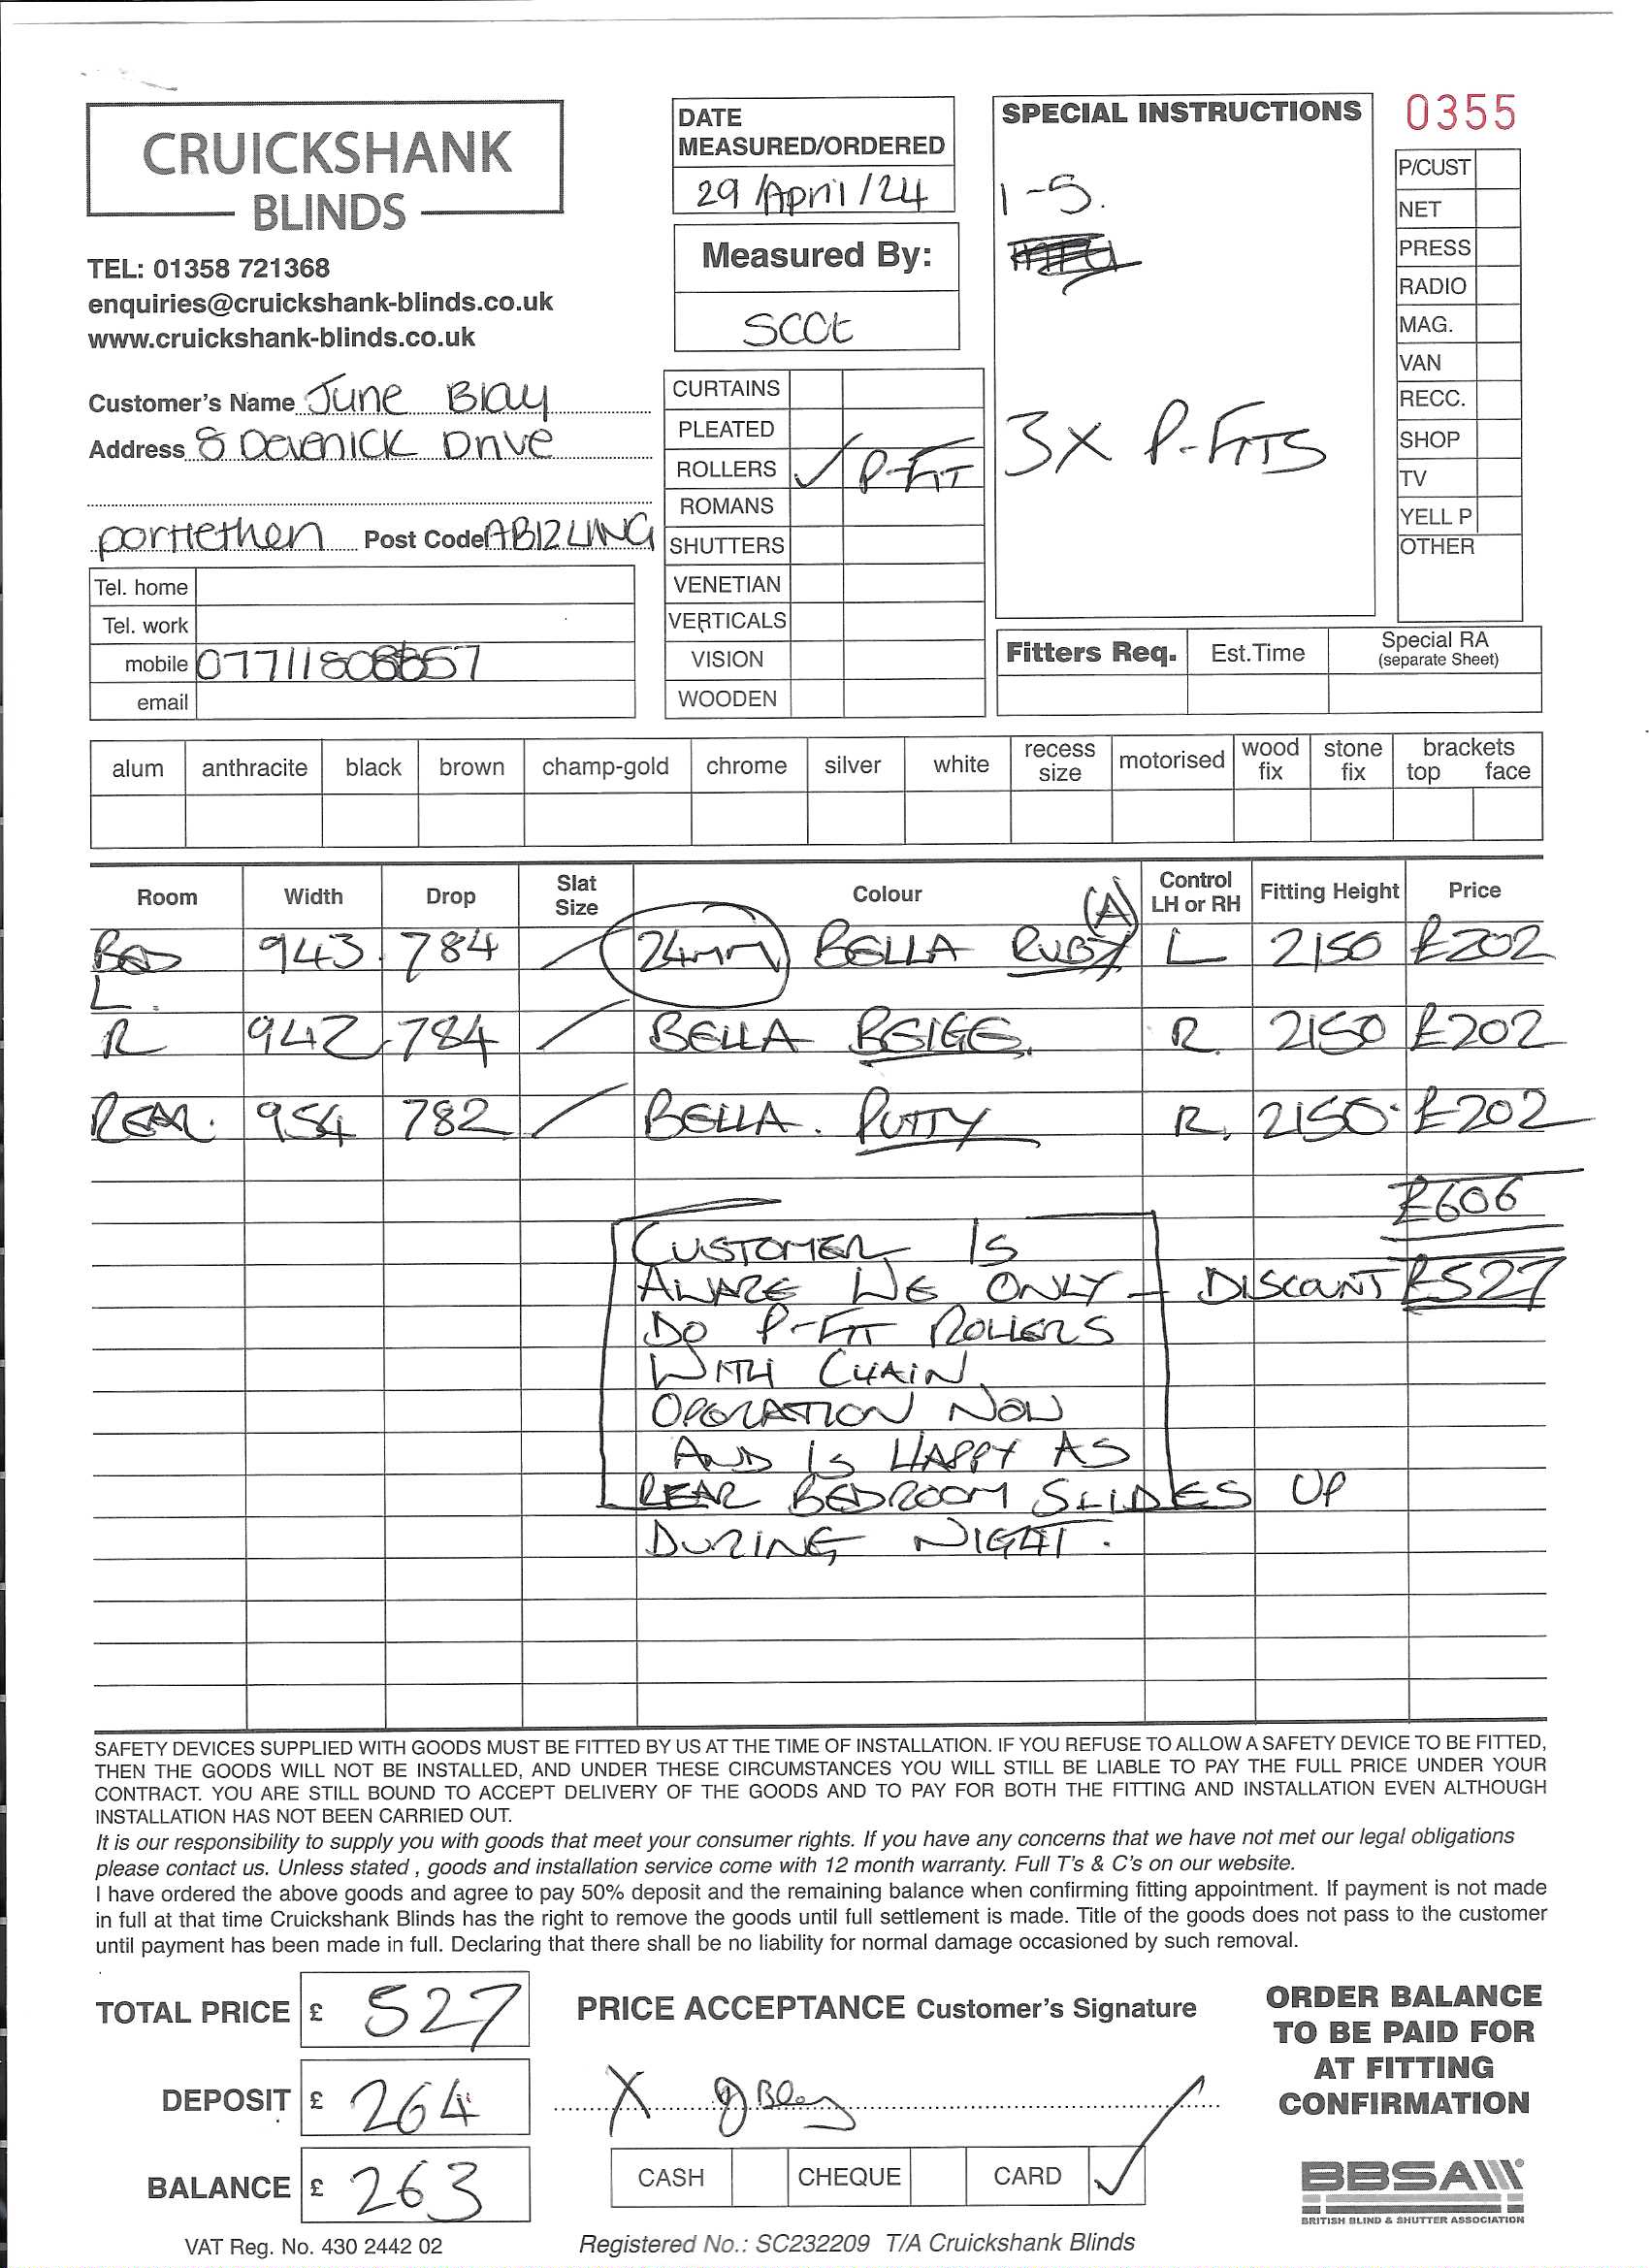 CRUICKSHANK
BLINDS
TEL: 01358 721368
enquiries@cruickshank-blinds.co.uk
www.cruickshank-blinds.co.uk
DATE
MEASURED/ORDERED
29/April/24
Measured By:
SCOt
SPECIAL INSTRUCTIONS
1-5.
3x P-FITS
0355
P/CUST
NET
PRESS
RADIO
MAG.
VAN
RECC.
SHOP
TV
YELL P
OTHER
Customer's Name June Blay
Address 8 Devenick Drive
portlethen Post Code AB12
Tel. home
Tel. work
mobile
email
CURTAINS
PLEATED
ROLLERS ✓ P-FIT
ROMANS
SHUTTERS
VENETIAN
VERTICALS
VISION
WOODEN
Fitters Req. Est.Time Special RA
(separate Sheet)
alum anthracite black brown champ-gold chrome silver white recess size motorised wood fix stone fix brackets top face
Room Width Drop Slat Size Colour Control LH or RH Fitting Height Price
BED 943 784 / 24mm BELLA RUBY (A) L 2150 £202
L.
R 942 784 / BELLA BEIGE. R. 2150 £202
REAR. 954 782 / BELLA. PUTTY R. 2150 £202
£606
CUSTOMER IS
AWARE WE ONLY - DISCOUNT £527
DO P-FIT ROLLERS
WITH CHAIN
OPERATION NOW
AND IS HAPPY AS
REAR BEDROOM SLIDES UP
DURING NIGHT.
SAFETY DEVICES SUPPLIED WITH GOODS MUST BE FITTED BY US AT THE TIME OF INSTALLATION. IF YOU REFUSE TO ALLOW A SAFETY DEVICE TO BE FITTED,
THEN THE GOODS WILL NOT BE INSTALLED, AND UNDER THESE CIRCUMSTANCES YOU WILL STILL BE LIABLE TO PAY THE FULL PRICE UNDER YOUR
CONTRACT. YOU ARE STILL BOUND TO ACCEPT DELIVERY OF THE GOODS AND TO PAY FOR BOTH THE FITTING AND INSTALLATION EVEN ALTHOUGH
INSTALLATION HAS NOT BEEN CARRIED OUT.
It is our responsibility to supply you with goods that meet your consumer rights. If you have any concerns that we have not met our legal obligations
please contact us. Unless stated , goods and installation service come with 12 month warranty. Full T's & C's on our website.
I have ordered the above goods and agree to pay 50% deposit and the remaining balance when confirming fitting appointment. If payment is not made
in full at that time Cruickshank Blinds has the right to remove the goods until full settlement is made. Title of the goods does not pass to the customer
until payment has been made in full. Declaring that there shall be no liability for normal damage occasioned by such removal.
TOTAL PRICE £ 527
DEPOSIT £ 264
BALANCE £ 263
VAT Reg. No. 430 2442 02
PRICE ACCEPTANCE Customer's Signature
X J Blay
CASH CHEQUE CARD ✓
Registered No.: SC232209 T/A Cruickshank Blinds
ORDER BALANCE
TO BE PAID FOR
AT FITTING
CONFIRMATION
BBSA
BRITISH BLIND & SHUTTER ASSOCIATION